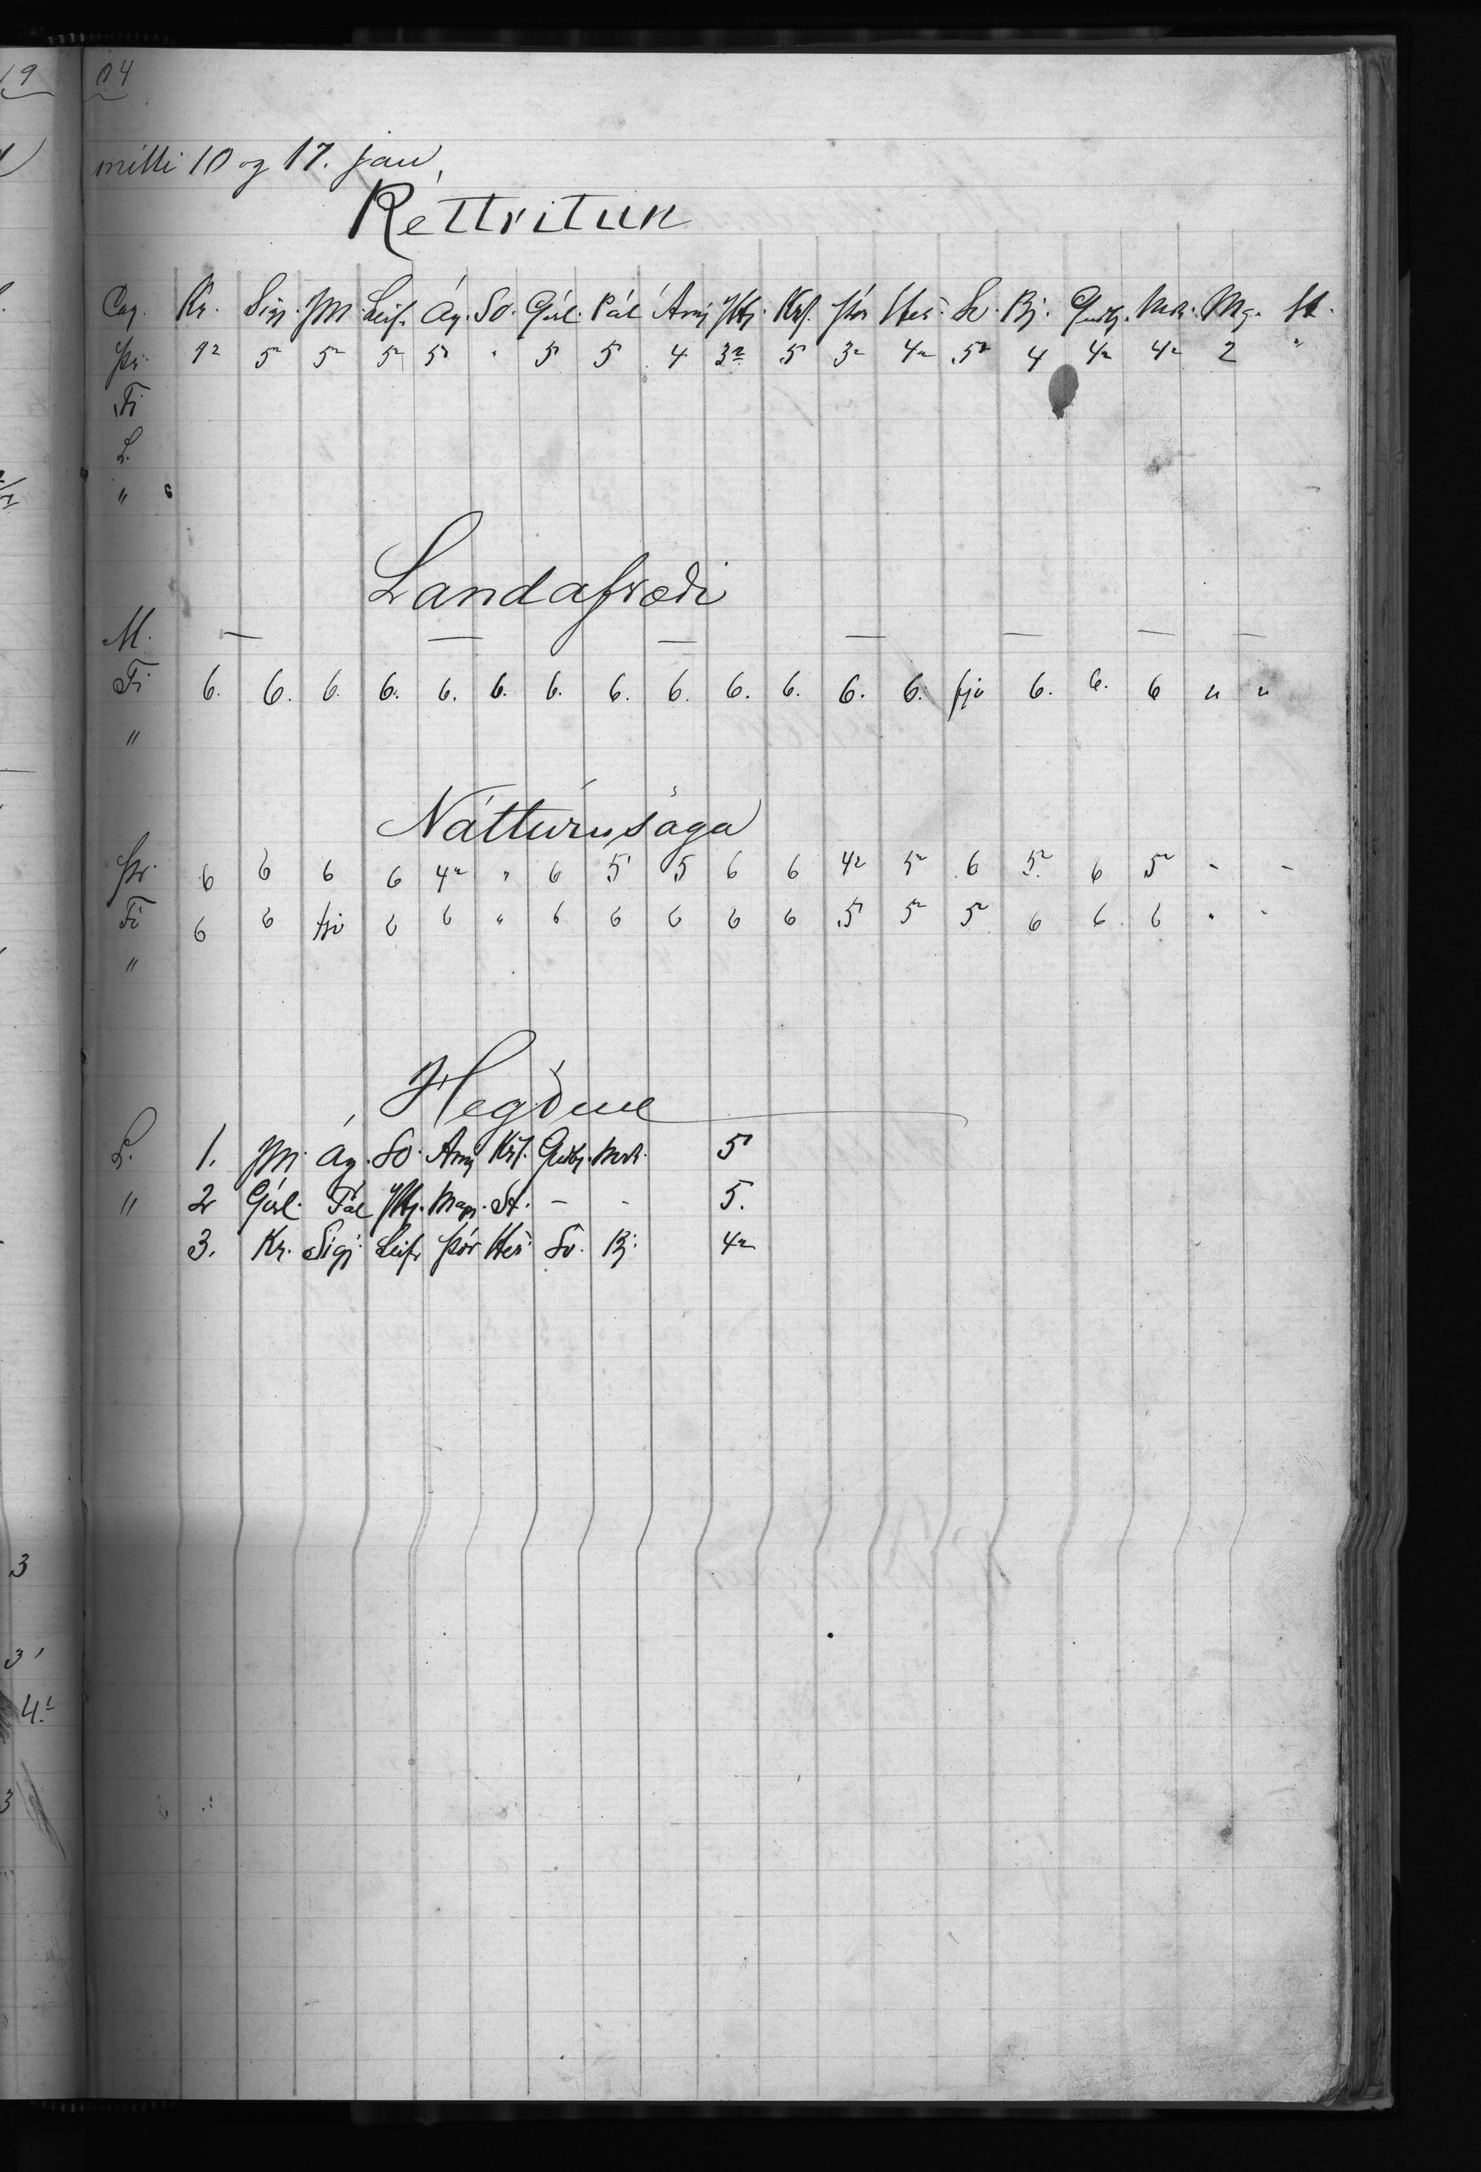 19 04
milli 10 og 17. jan.
Réttritun
Dag. Kr. Sigj. JM. Leif. Ág. So. Gísl. Pál Arnj Hbj. Krf. Þór Hei. Sv. Bj. Guðbj. Mar. Mg. St.
Þr. 5² 5² 5² 5² " 5 5 4 3² 5 3² 4² 5² 4 4² 4² 2 "
Fi
L.
"
Landafræði
M. — — — — — — —
Fi 6. 6. 6. 6. 6. 6. 6. 6. 6. 6. 6. 6. 6. fjv 6. 6. 6 " "
"
Náttúrusaga
Þr. 6 6 6 6 4² " 6 5 5 6 6 4² 5² 6 5² 6 5² - -
Fi 6 6 fjv 6 6 " 6 6 6 6 6 5 5² 5² 6 6 6 " -
"
Hegðun
L. 1. JM. Ág. So. Arnj Krf. Guðbj. Mar. 5
" 2 Gísl. Pál Hbj. Mag. St. - - 5.
3. Kr. Sigj. Leif Þór Hei. Sv. Bj. 4²
3
3
4
3